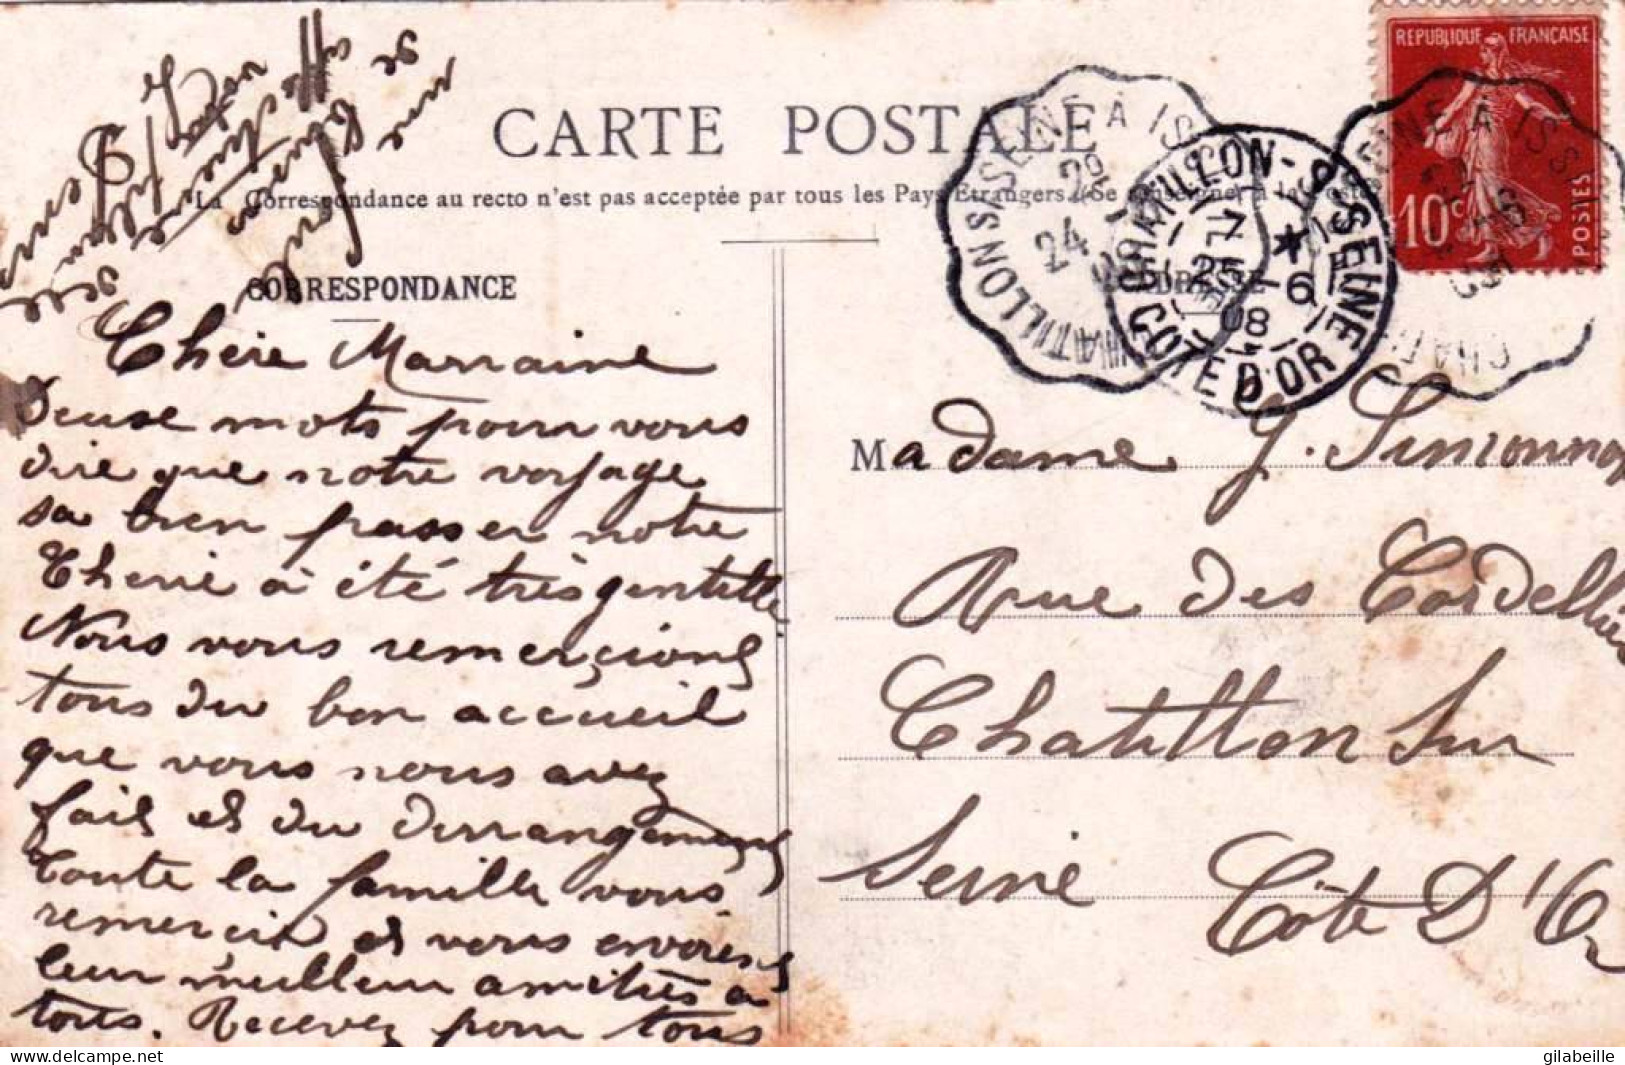 REPUBLIQUE FRANÇAISE
10c
POSTES
CARTE POSTALE
La Correspondance au recto n'est pas acceptée par tous les Pays Etrangers (Se renseigner à la
CORRESPONDANCE
CHATILLON S SEINE A IS
24
CHATILLON-S-SEINE
7 * 15
25 -6
08
COTE D'OR
Chère Marraine
Deuse mots pour vous
dire que notre voyage
sa bien passer notre
Cherie a été très gentille
Nous vous remerçions
tous du bon accueil
que vous nous avez
fait et du derrangement
toute la famille vous
remercie et vous envoient
leur meilleur amitiès a
tous. Recevez pour tous
Madame J. Simonnot
Rue des Cordelliers
Chatillon Sur
Seine Côte D'Or
gilabeille